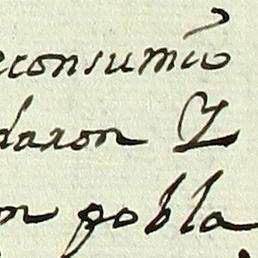 econsumio
daron Z
n pobla